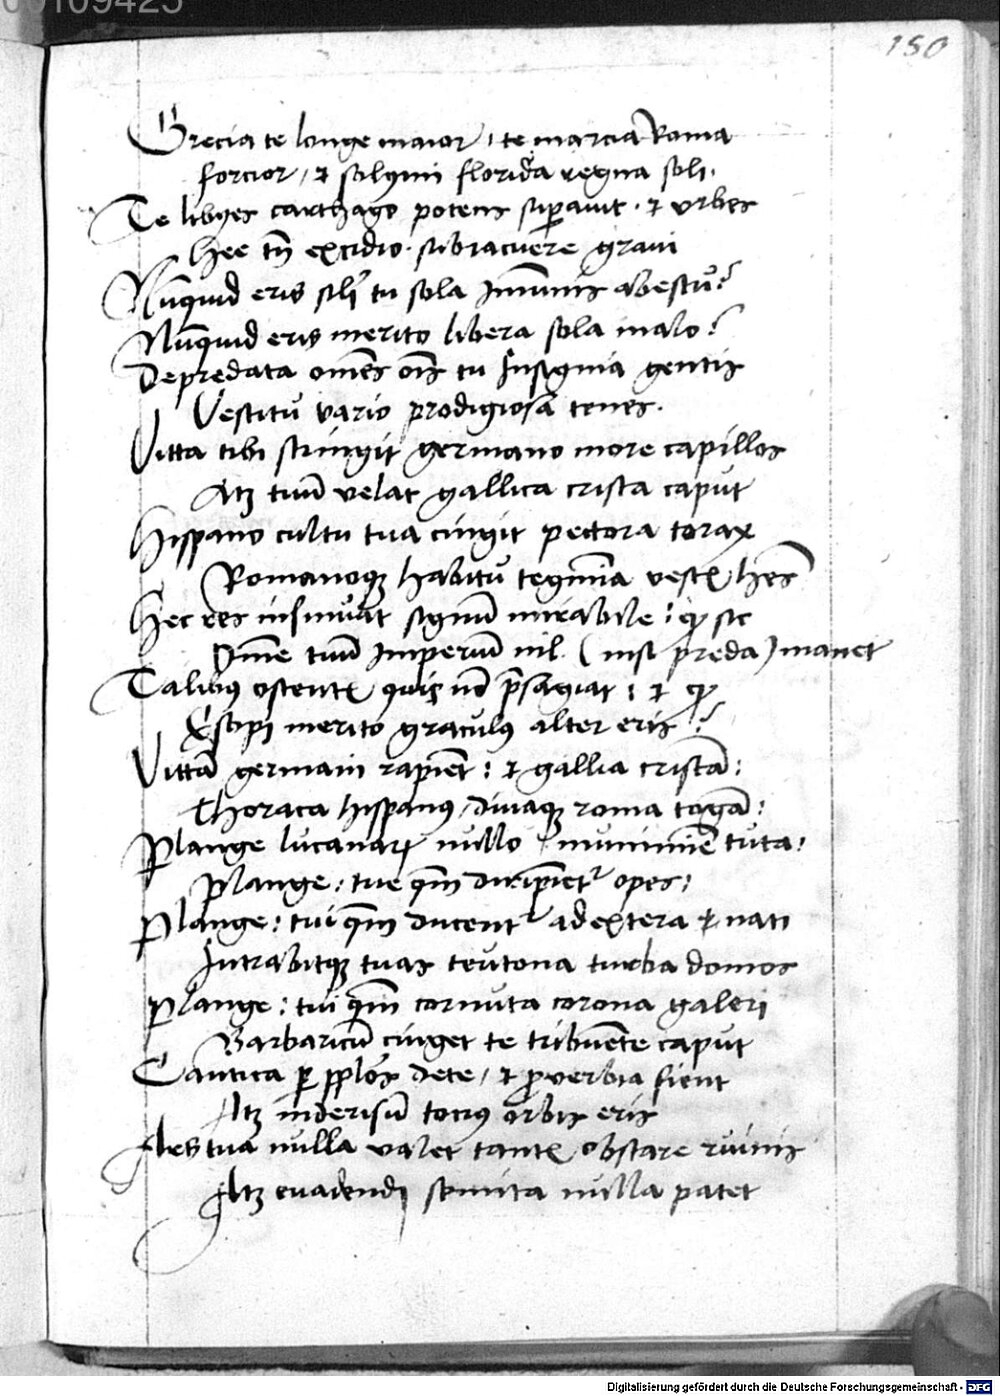 00109425
150
Grecia te longe maior, te marcia Roma
forcior, et solymi florida regna soli.
Te libyes carthago potens suꝑauit. et vrbes
hee tn̄ excidio. subiacuere graui
Nūquid eris sola Immunis abestu?
Nūquid eris merito libera sola malo?
Depredata om̄es tu Insignia gentis
Vestitū vario prodigiosā tenes.
Vitta tibi stringit germano more capillos
Atqꝫ tuū velat gallica crista caput
Hispano cultu tua cingit pectora torax
Romanoqꝫ habitū tegmīa hēs
Hec res insinuat signū mirabile: ꝙ sic
Om̄e tuū Imperiū nil. (nisi preda) manet
Talibus ostentis quis nō p̄sagiat: et ꝙ
Esopi merito graculus alter eris?
Vittā germani rapient: et gallia cristā:
Thoraca hispanus, diuaqꝫ roma togā:
Plange lucanaꝝ nullo munimine tuta:
Plange: tue qm̄ diripient² opes:
Plange: tui qm̄ ducent² ad extera nati
Intrabitqꝫ tuas teutona turba domos
Plange: tui qm̄ cornuta corona galeri
Barbaricū cinget te tribuente caput
Cantica ꝑ pplōs de te, et ꝓuerbia fient
Atqꝫ inderisū tocius orbis eris
Ars tua nulla valet tantis obstare ruinis
Atqꝫ euadendi semita nulla patet
Digitalisierung gefördert durch die Deutsche Forschungsgemeinschaft - DFG